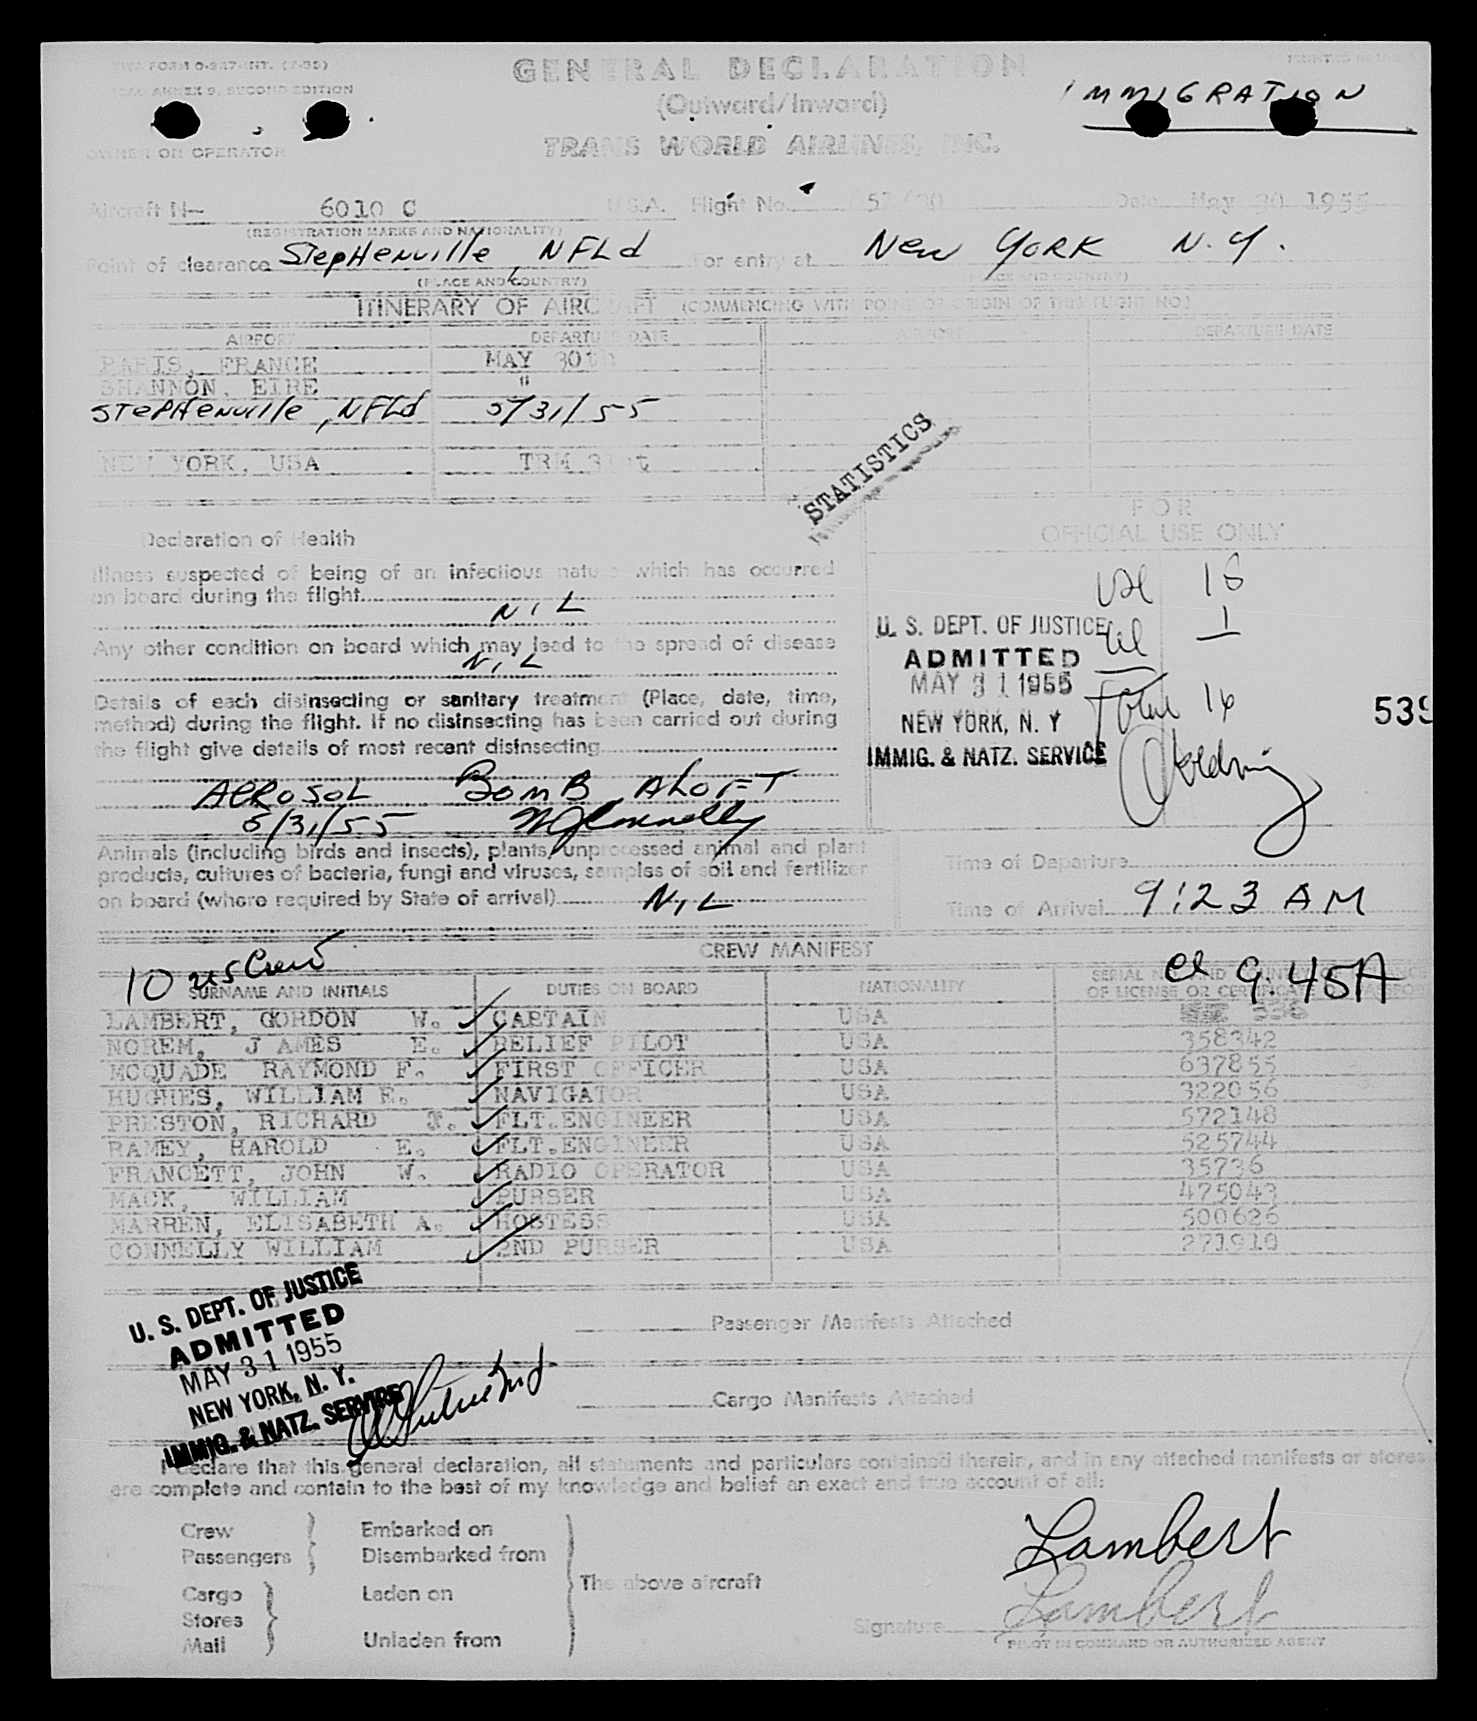 TWA FORM O-347-INT. (7-55)
ICAO ANNEX 9, SECOND EDITION
GENERAL DECLARATION
(Outward/Inward)
TRANS WORLD AIRLINES, INC.
IMMIGRATION
OWNER OR OPERATOR
Aircraft N- 6010 C U.S.A. Flight No. Date May 30 1955
(REGISTRATION MARKS AND NATIONALITY)
Point of clearance Stephenville, NFLd For entry at New York N.Y.
(PLACE AND COUNTRY) (PLACE AND COUNTRY)
ITINERARY OF AIRCRAFT (COMMENCING WITH POINT OF ORIGIN OF THIS FLIGHT NO.)
AIRPORT DEPARTURE DATE DEPARTURE DATE
PARIS, FRANCE MAY 30th
SHANNON, EIRE "
Stephenville, NFLd 5/31/55
NEW YORK, USA TRM 31st
STATISTICS
FOR
OFFICIAL USE ONLY
Declaration of Health
Illness suspected of being of an infectious nature which has occurred
on board during the flight
NIL
Any other condition on board which may lead to the spread of disease
NIL
Details of each disinsecting or sanitary treatment (Place, date, time,
method) during the flight. If no disinsecting has been carried out during
the flight give details of most recent disinsecting
AEROSOL BOMB ALOFT
5/31/55 WJConnelly
1
U. S. DEPT. OF JUSTICE
ADMITTED
MAY 31 1955
NEW YORK, N. Y
IMMIG. & NATZ. SERVICE
539
Animals (including birds and insects), plants, unprocessed animal and plant
products, cultures of bacteria, fungi and viruses, samples of soil and fertilizer
on board (where required by State of arrival) NIL
Time of Departure
Time of Arrival 9:23 AM
CREW MANIFEST
10 US Crew
9:45A
SURNAME AND INITIALS DUTIES ON BOARD NATIONALITY SERIAL NO. AND COUNTRY OF ISSUANCE
OF LICENSE OR CERTIFICATE OR PASSPORT
LAMBERT, GORDON W. CAPTAIN USA 336
NOREM, JAMES E. RELIEF PILOT USA 358342
MCQUADE RAYMOND F. FIRST OFFICER USA 637855
HUGHES, WILLIAM E. NAVIGATOR USA 322056
PRESTON, RICHARD T. FLT.ENGINEER USA 572148
RAMEY, HAROLD E. FLT.ENGINEER USA 525744
FRANCETT, JOHN W. RADIO OPERATOR USA 35736
MACK, WILLIAM PURSER USA 475043
MARREN, ELISABETH A. HOSTESS USA 500626
CONNELLY WILLIAM 2ND PURSER USA 271910
U. S. DEPT. OF JUSTICE
ADMITTED
MAY 31 1955
NEW YORK, N. Y.
IMMIG. & NATZ. SERVICE
Passenger Manifests Attached
Cargo Manifests Attached
I declare that this general declaration, all statements and particulars contained therein, and in any attached manifests or stores
are complete and contain to the best of my knowledge and belief an exact and true account of all:
Crew Embarked on
Passengers Disembarked from
The above aircraft
Cargo Laden on
Stores
Mail Unladen from
Lambert
Signature Lambert
PILOT IN COMMAND OR AUTHORIZED AGENT